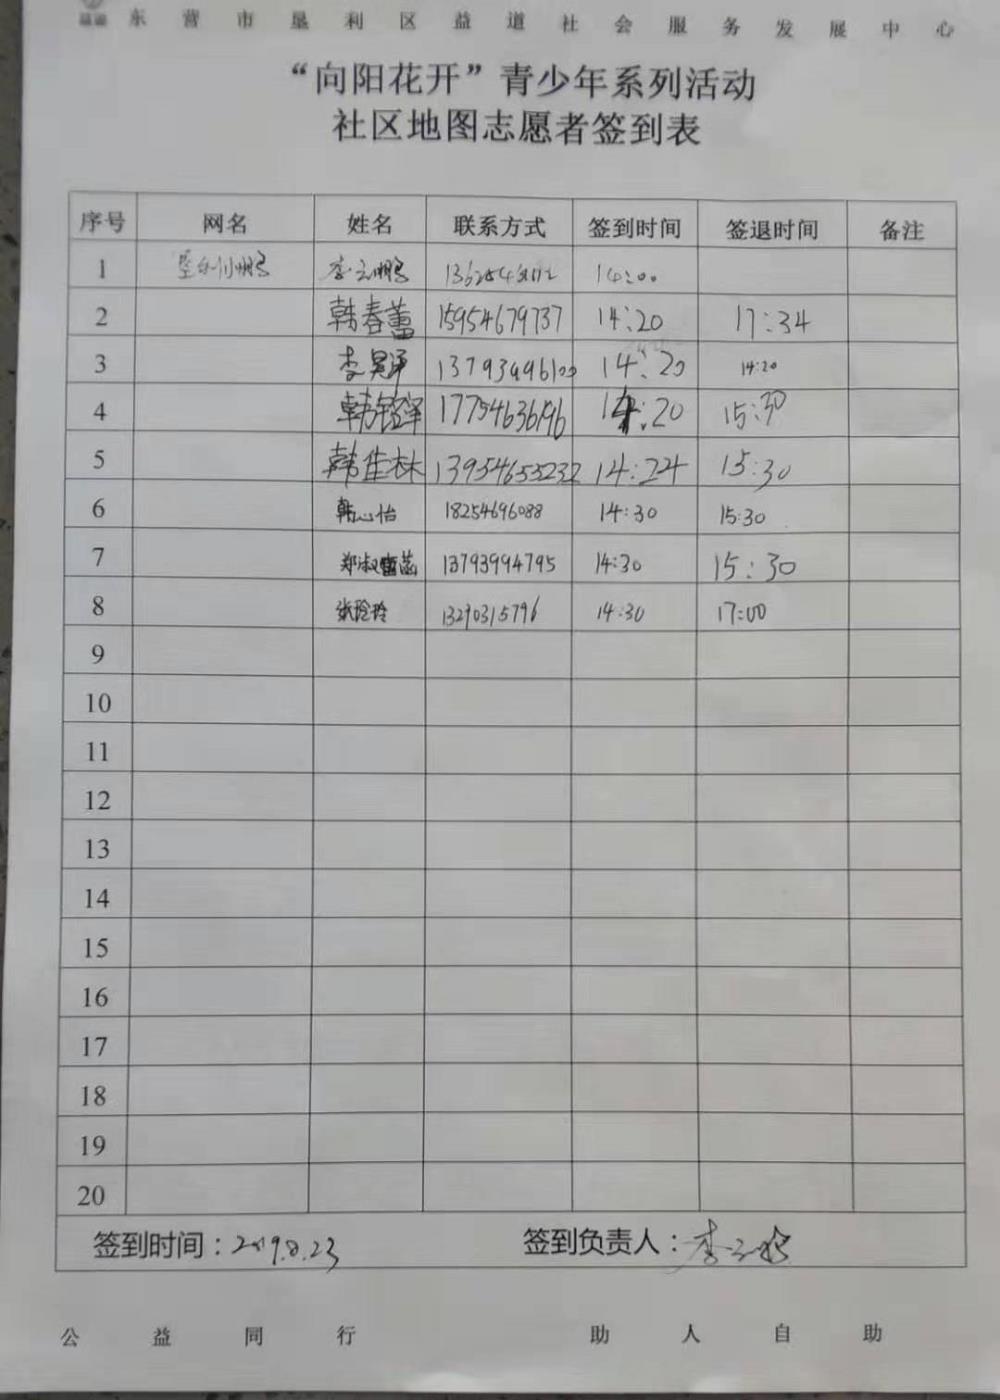 东营市垦利区益道社会服务发展中心
“向阳花开”青少年系列活动
社区地图志愿者签到表
序号 网名 姓名 联系方式 签到时间 签退时间 备注
1 垦利小鹏 李云鹏 14:00
2 韩春蕾 15954679737 14:20 17:34
3 李昊泽 14:20 14:20
4 17754636196 14:20 15:30
5 韩佳林 13954653232 14:24 15:30
6 韩心怡 18254696088 14:30 15:30
7 13793994795 14:30 15:30
8 张玲玲 13290315796 14:30 17:00
9
10
11
12
13
14
15
16
17
18
19
20
签到时间：2019.8.23 签到负责人：李云鹏
公益同行 助人自助